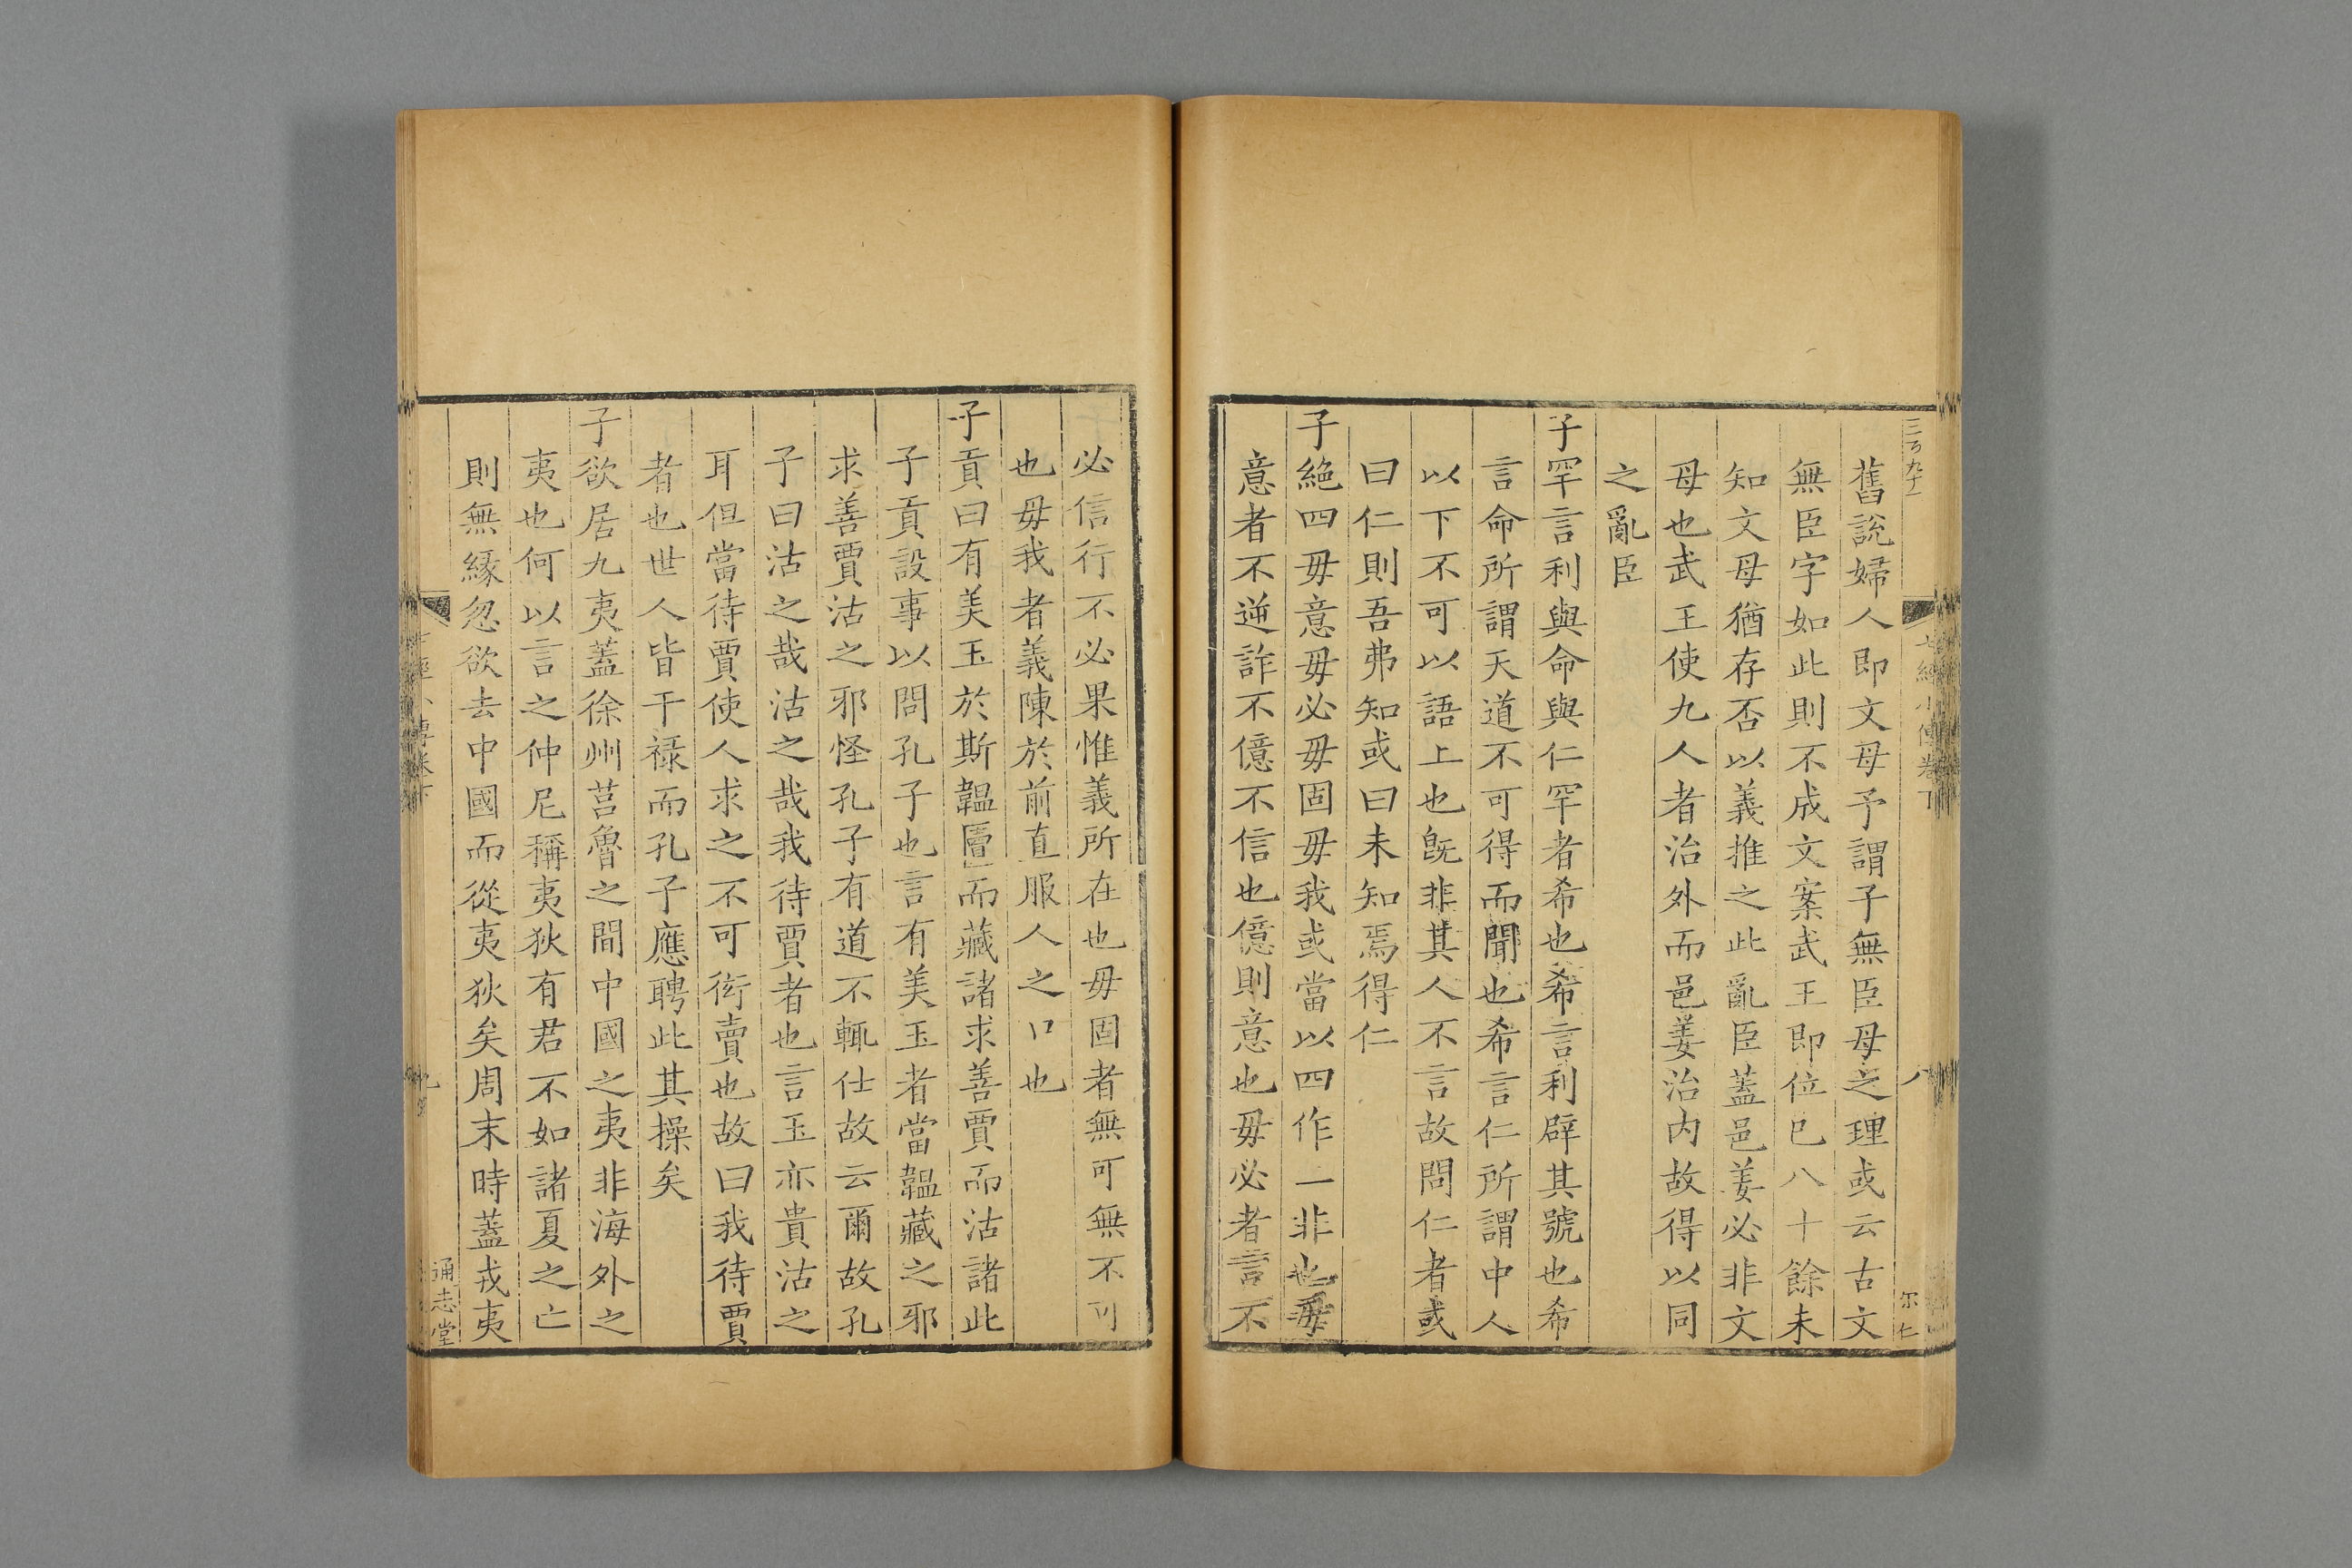 舊說婦人即文母予謂子無臣母之理或云古文
無臣字如此則不成文案武王即位已八十餘未
知文母猶存否以義推之此亂臣蓋邑姜必非文
母也武王使九人者治外而邑姜治內故得以同
之亂臣
子罕言利與命與仁罕者希也希言利辟其號也希
言命所謂天道不可得而聞也希言仁所謂中人
以下不可以語上也旣非其人不言故問仁者或
曰仁則吾弗知或曰未知焉得仁
子絕四毋意毋必毋固毋我或當以四作一非也毋
意者不逆詐不億不信也億則意也毋必者言不
必信行不必果惟義所在也毋固者無可無不可
也毋我者義陳於前直服人之口也
子貢曰有美玉於斯韞匵而藏諸求善賈而沽諸此
子貢設事以問孔子也言有美玉者當韞藏之邪
求善賈沽之邪怪孔子有道不輒仕故云爾故孔
子曰沽之哉沽之哉我待賈者也言玉亦貴沽之
耳但當待賈使人求之不可衒賣也故曰我待賈
者也世人皆干祿而孔子應聘此其操矣
子欲居九夷蓋徐州莒魯之間中國之夷非海外之
夷也何以言之仲尼稱夷狄有君不如諸夏之亡
則無緣忽欲去中國而從夷狄矣周末時蓋戎夷
七經小傳卷下
八
九
通志堂